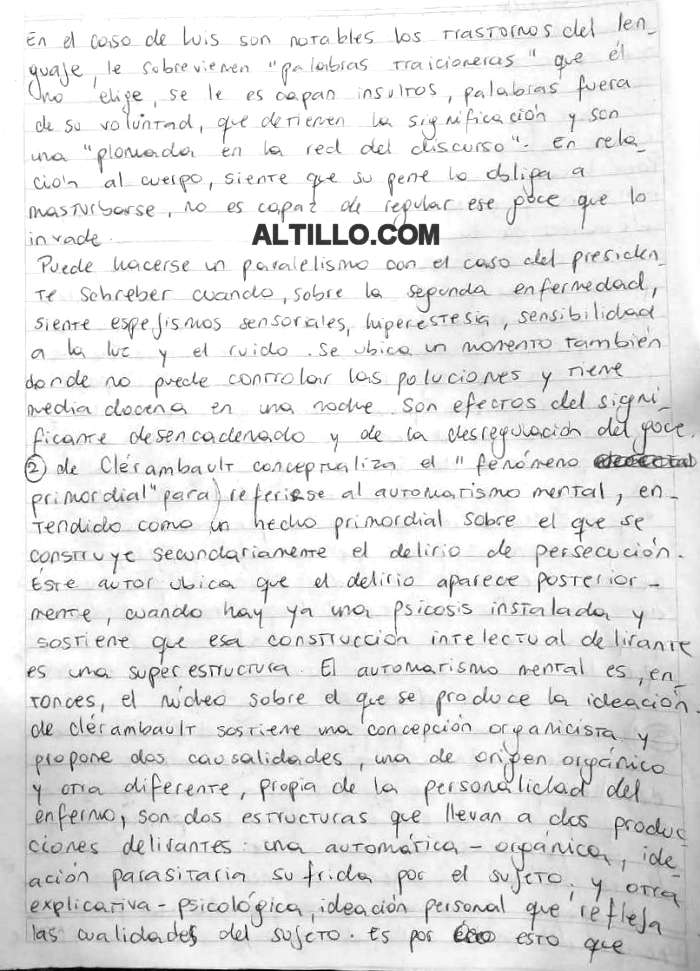 En el caso de Luis son notables los trastornos del len_
guaje, le sobrevienen "palabras traicioneras" que él
no elige, se le es capan insultos, palabras fuera
de su voluntad, que detienen la significación y son
una "plomada en la red del discurso". En rela_
ción al cuerpo, siente que su pene lo obliga a
masturbarse, no es capaz de regular ese goce que lo
invade.
ALTILLO.COM
Puede hacerse un paralelismo con el caso del presiden_
te Schreber cuando, sobre la segunda enfermedad,
siente espejismos sensoriales, hiperestesia, sensibilidad
a la luz y el ruido. Se ubica un momento también
donde no puede controlar las poluciones y tiene
media docena en una noche. Son efectos del signi_
ficante desencadenado y de la desregulación del goce.
② de Clérambault conceptualiza el "fenómeno
primordial" para referirse al automatismo mental, en_
tendido como un hecho primordial sobre el que se
construye secundariamente el delirio de persecución.
Éste autor ubica que el delirio aparece posterior_
mente, cuando hay ya una psicosis instalada y
sostiene que esa construcción intelectual delirante
es una superestructura. El automatismo mental es, en_
tonces, el núcleo sobre el que se produce la ideación.
de Clérambault sostiene una concepción organicista y
propone dos causalidades, una de origen orgánico
y otra diferente, propia de la personalidad del
enfermo, son dos estructuras que llevan a dos produc_
ciones delirantes: una automática - orgánica, ide_
ación parasitaria sufrida por el sujeto, y otra
explicativa - psicológica, ideación personal que refleja
las cualidades del sujeto. es por esto que